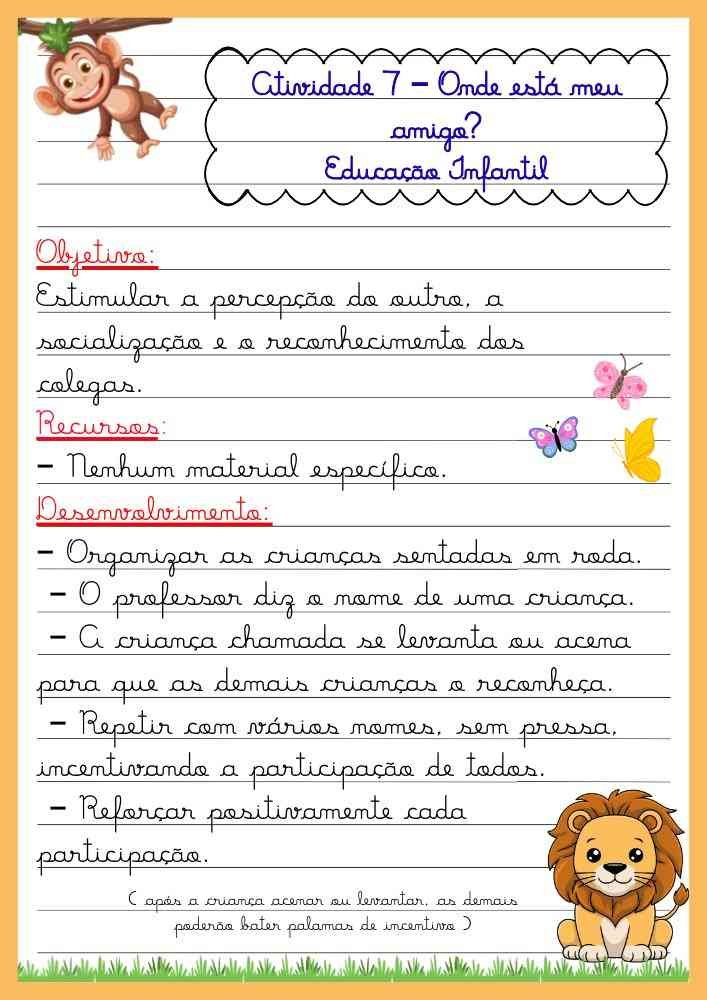 Atividade 7 - Onde está meu
amigo?
Educação Infantil
Objetivo:
Estimular a percepção do outro, a
socialização e o reconhecimento dos
colegas.
Recursos:
- Nenhum material específico.
Desenvolvimento:
- Organizar as crianças sentadas em roda.
- O professor diz o nome de uma criança.
- A criança chamada se levanta ou acena
para que as demais crianças o reconheça.
- Repetir com vários nomes, sem pressa,
incentivando a participação de todos.
- Reforçar positivamente cada
participação.
( após a criança acenar ou levantar, as demais
poderão bater palamas de incentivo )